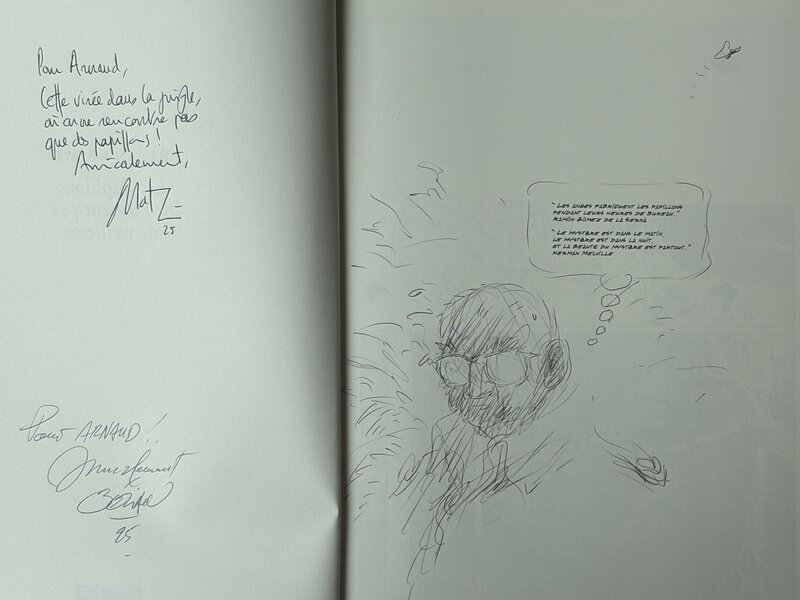 Pour Arnaud,
Cette virée dans la jungle,
où on ne rencontre pas
que des papillons !
Amicalement,
Matz
25
Pour ARNAUD !!
Amicalement
25
" Les anges fabriquent les papillons
pendant leurs heures de bureau. "
Ramón Gómez de la Serna
" Le mystère est dans le matin,
le mystère est dans la nuit,
et la beauté du mystère est partout. "
Herman Melville